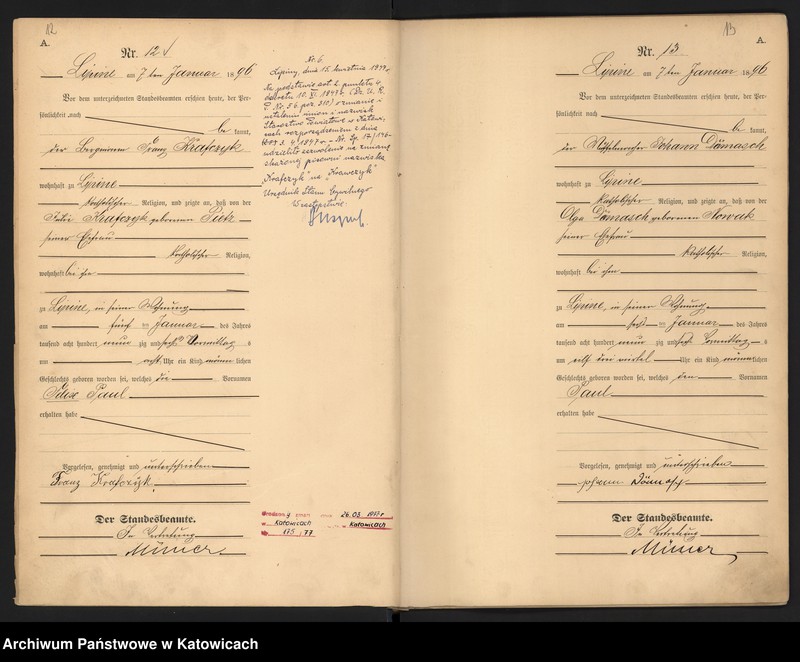 12
A.
Nr. 12
Lipine am 7ten Januar 1896
Vor dem unterzeichneten Standesbeamten erschien heute, der Per-
sönlichkeit nach
be kannt,
der Bergmann Franz Krafczyk
wohnhaft zu Lipine
katholischer Religion, und zeigte an, daß von der
Krafczyk geborenen Pietz
seiner Ehefrau
katholischer Religion,
wohnhaft bei ihm
zu Lipine, in seiner Wohnung
am fünf ten Januar des Jahres
tausend acht hundert neun zig und sechs Vormittag s
um acht Uhr ein Kind männ lichen
Geschlechts geboren worden sei, welches die Vornamen
Paul
erhalten habe
Vorgelesen, genehmigt und unterschrieben
Franz Krafczyk.
Der Standesbeamte.
In Vertretung
Nr. 6
Lipiny, dnia 15. kwietnia
Na podstawie art. 2 punktu 4
dekretu 10. XI. (Dz. U. R.
P. Nr. 56 poz. 310) o zmianie i
ustaleniu imion i nazwisk
Starostwo Powiatowe w Katow.
zezwolenia na zmianę
pisowni nazwiska
"Krafczyk" na "Krawczyk"
Urzędnik Stanu Cywilnego
W zastępstwie:
26.03. 1977 r
Katowicach
Katowicach
175 / 77
13
A.
Nr. 13
Lipine am 7ten Januar 1896
Vor dem unterzeichneten Standesbeamten erschien heute, der Per-
sönlichkeit nach
be kannt,
der Johann Dämasch
wohnhaft zu Lipine
katholischer Religion, und zeigte an, daß von der
Olga Dämasch geborenen Nowak
seiner Ehefrau
katholischer Religion,
wohnhaft bei ihm
zu Lipine, in seiner Wohnung
am sechs ten Januar des Jahres
tausend acht hundert neun zig und sechs Vormittag s
um elf drei viertel Uhr ein Kind männ lichen
Geschlechts geboren worden sei, welches den Vornamen
Paul
erhalten habe
Vorgelesen, genehmigt und unterschrieben
Johann Dämasch
Der Standesbeamte.
In Vertretung
Archiwum Państwowe w Katowicach